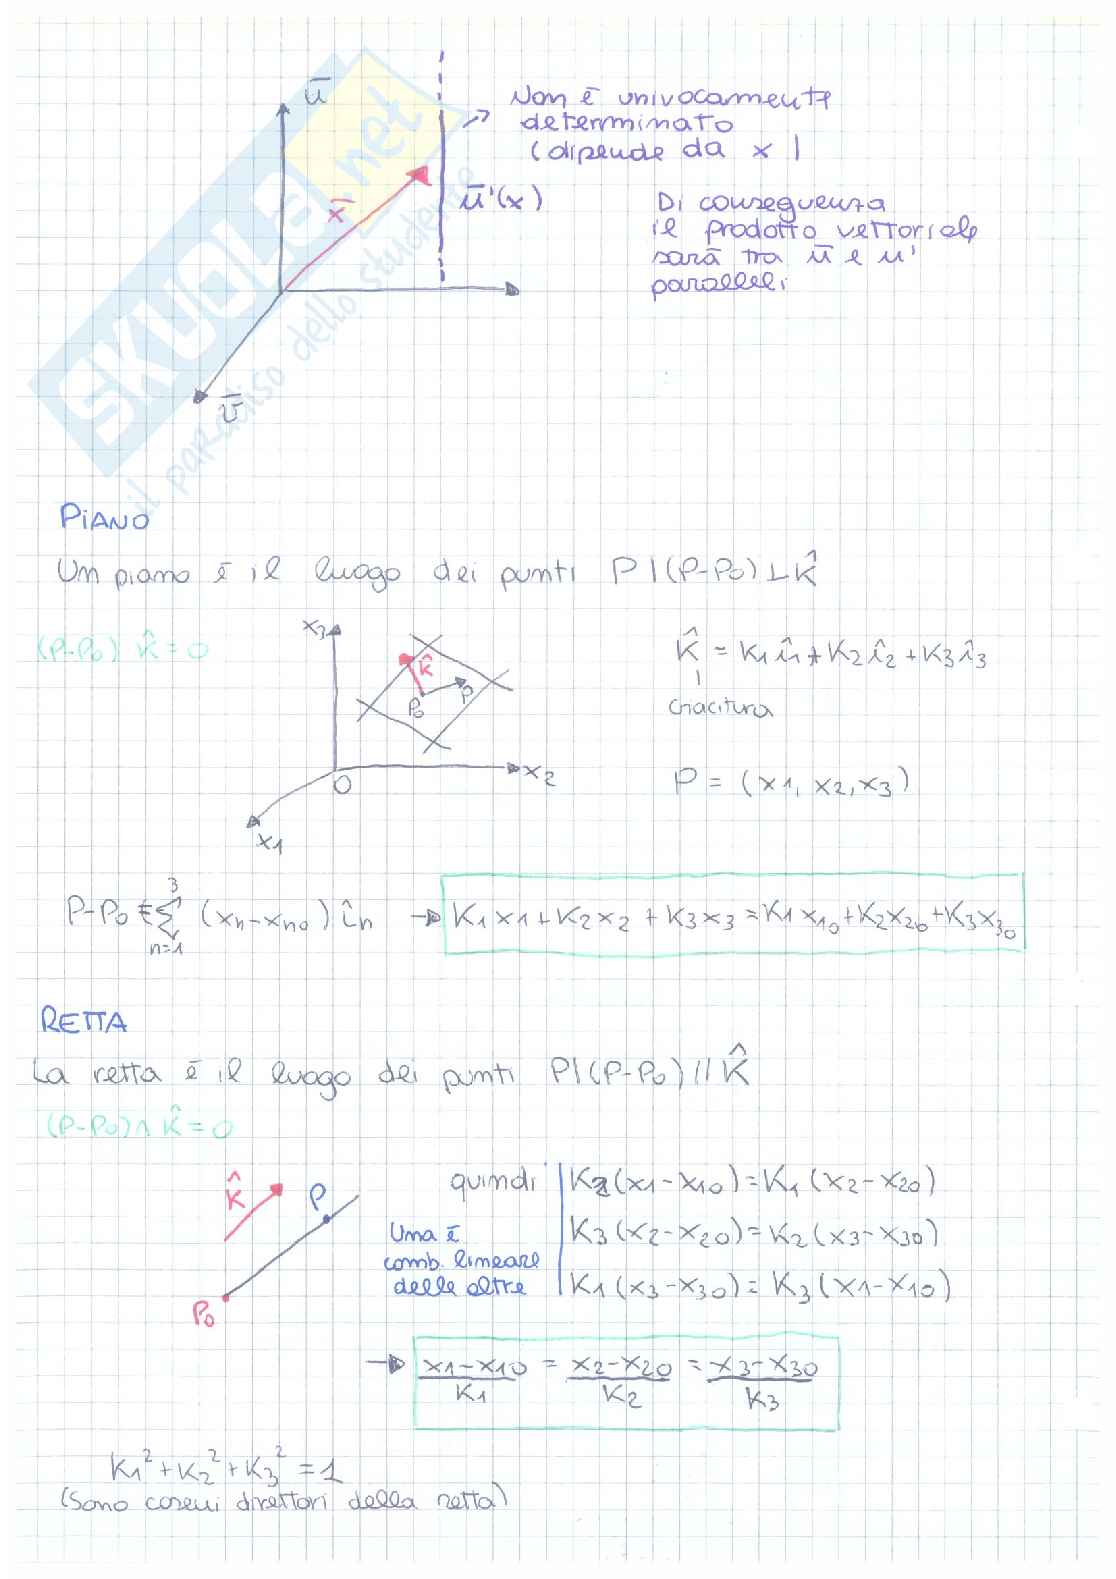 ū
Non è univocamente
determinato
(dipende da x)
x̄
ū'(x)
Di conseguenza
il prodotto vettoriale
sarà tra ū e u'
paralleli
v̄
SKUOLA.net
il paradiso dello studente
PIANO
Un piano è il luogo dei punti P | (P-P₀) ⊥ k̂
(P-P₀) k̂ = 0
x₃
k̂
P₀ P
O
x₂
x₁
k̂ = k₁ î₁ + k₂ î₂ + k₃ î₃
giacitura
P = (x₁, x₂, x₃)
P-P₀ = ∑ₙ₌₁³ (xₙ - xₙ₀) îₙ → k₁x₁ + k₂x₂ + k₃x₃ = k₁x₁₀ + k₂x₂₀ + k₃x₃₀
RETTA
La retta è il luogo dei punti P | (P-P₀) // k̂
(P-P₀) ∧ k̂ = 0
k̂
P
P₀
quindi
Una è
comb. lineare
delle altre
k₂(x₁-x₁₀) = k₁(x₂-x₂₀)
k₃(x₂-x₂₀) = k₂(x₃-x₃₀)
k₁(x₃-x₃₀) = k₃(x₁-x₁₀)
→ (x₁-x₁₀)/k₁ = (x₂-x₂₀)/k₂ = (x₃-x₃₀)/k₃
k₁² + k₂² + k₃² = 1
(Sono coseni direttori della retta)